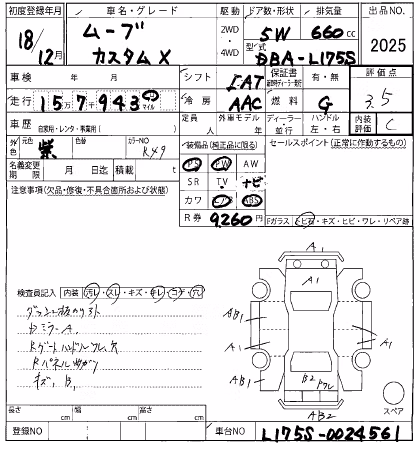 初度登録年月 車名・グレード 駆動 ドア数・形状 排気量 出品No.
18/12月 ムーブ カスタムX 2WD・4WD 5W 660cc 2025
型式 DBA-L175S
車検 年 月 シフト IAT 保証書 有・無 評価点
走行 157,943 km マイル 冷房 AAC 燃料 G 3.5
車歴 自家用・レンタ・事業用( ) 定員 人 外車モデル 年 ディーラー 並行 ハンドル 左・右 内装評価 C
外色 元色 紫 色替 カラーNo R49 装備品(純正品に限る) セールスポイント(正常に作動するもの)
名義変更期限 月 日迄 積載 t PS PW AW
注意事項(欠品・修復・不具合箇所および状態) SR TV ナビ
カワ エアB ABS
R券 9,260円 Fガラス トビ石・キズ・ヒビ・ワレ・リペア跡
検査員記入 内装 汚レ・スレ・キズ・キレ・コゲ・穴
A1
A1
AB1
A1
A1
AB1
B2
AB2
スペア
Dミラー A.
キズ, B,
長さ cm 幅 cm 高さ cm
登録NO 車台NO L175S-0024561